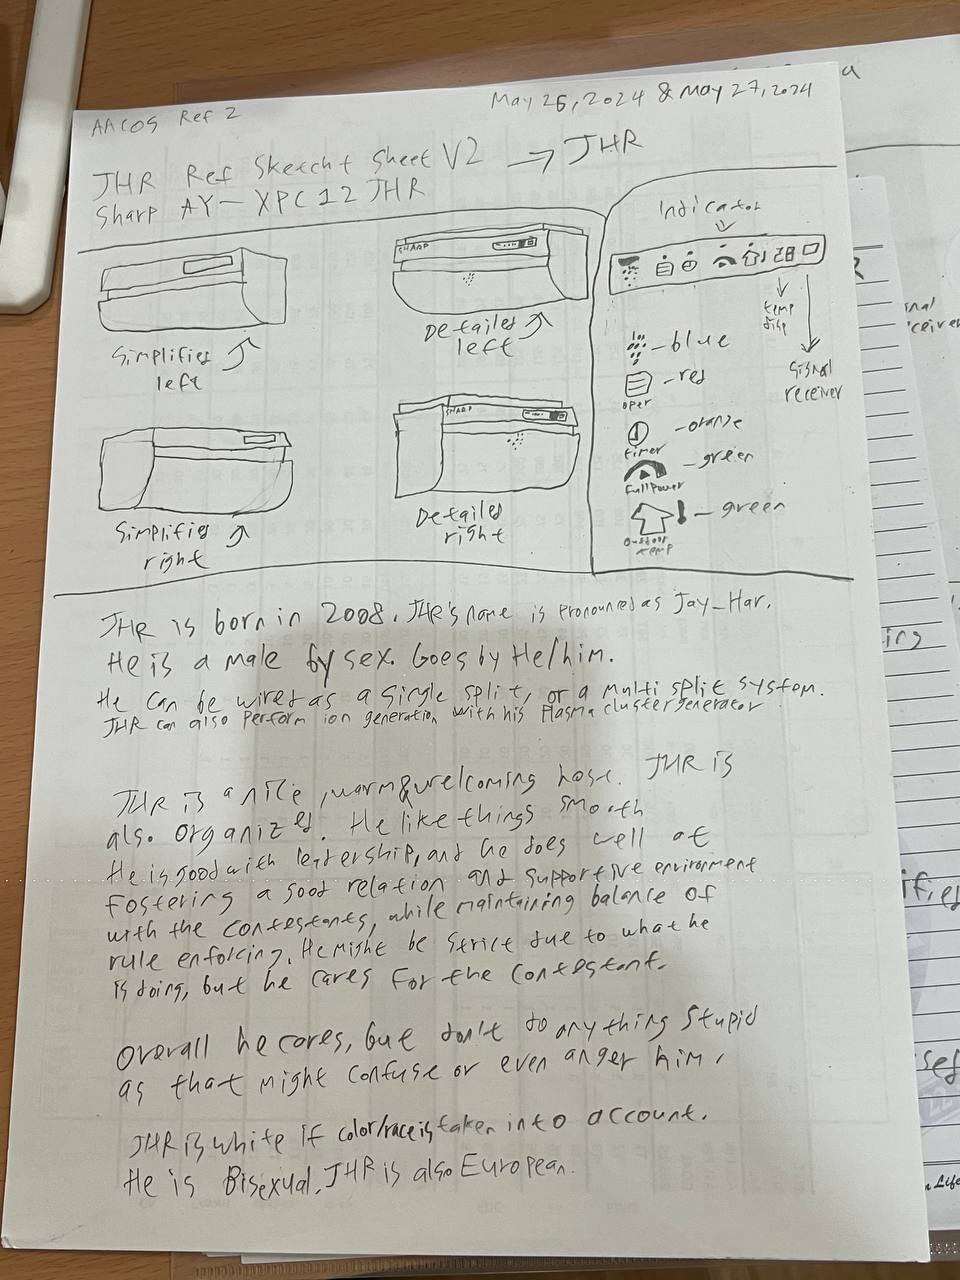 AACOS Ref 2
May 26, 2024 & May 27, 2024
JHR Ref Sketcht Sheet V2 → JHR
Sharp AY-XPC12JHR
Simplified
left
SHARP
Detailed
left
Simplified
right
SHARP
Detailed
right
Indicator
temp
disp
signal
receiver
- blue
- red
oper
- orange
timer
- green
Full Power
- green
outdoor
temp
JHR is born in 2008. JHR's name is pronounced as Jay-Har.
He is a male by sex. Goes by He/him.
He can be wired as a single split, or a multi split system.
JHR can also perform ion generation with his Plasma cluster generator
JHR is a nice, warm & welcoming host. JHR is
also organized. He like things smooth
He is good with leadership, and he does well at
fostering a good relation and supportive environment
with the contestants, while maintaining balance of
rule enforcing. He might be strict due to what he
is doing, but he cares for the contestant.
Overall he cares, but don't do anything stupid
as that might confuse or even anger him.
JHR is white if color/race is taken into account.
He is Bisexual. JHR is also European.